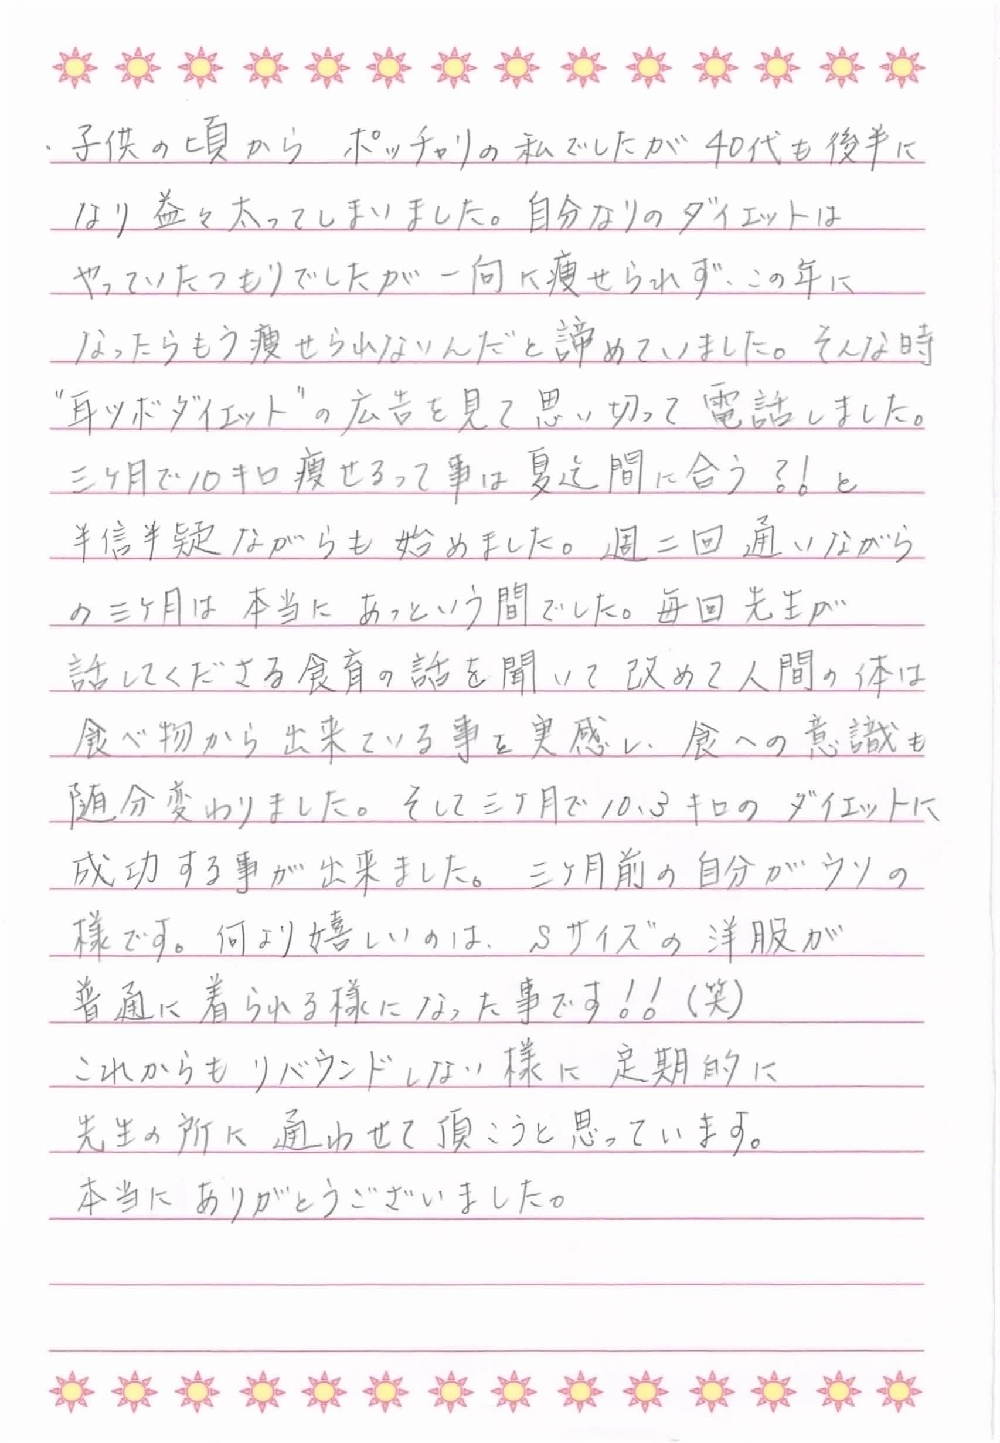 子供の頃から ポッチャリの私でしたが 40代も後半に
なり 益々太ってしまいました。自分なりのダイエットは
やっていたつもりでしたが 一向に痩せられず、この年に
なったらもう痩せられないんだと諦めていました。そんな時
"耳ツボダイエット"の広告を見て思い切って電話しました。
三ケ月で10キロ痩せるって事は夏迄間に合う?!と
半信半疑ながらも始めました。週二回通いながら
の三ケ月は本当にあっという間でした。毎回先生が
話してくださる食育の話を聞いて改めて人間の体は
食べ物から出来ている事を実感し、食への意識も
随分変わりました。そして三ケ月で10.3キロのダイエットに
成功する事が出来ました。三ケ月前の自分がウソの
様です。何より嬉しいのは、Sサイズの洋服が
普通に着られる様になった事です!!(笑)
これからもリバウンドしない様に定期的に
先生の所に通わせて頂こうと思っています。
本当にありがとうございました。